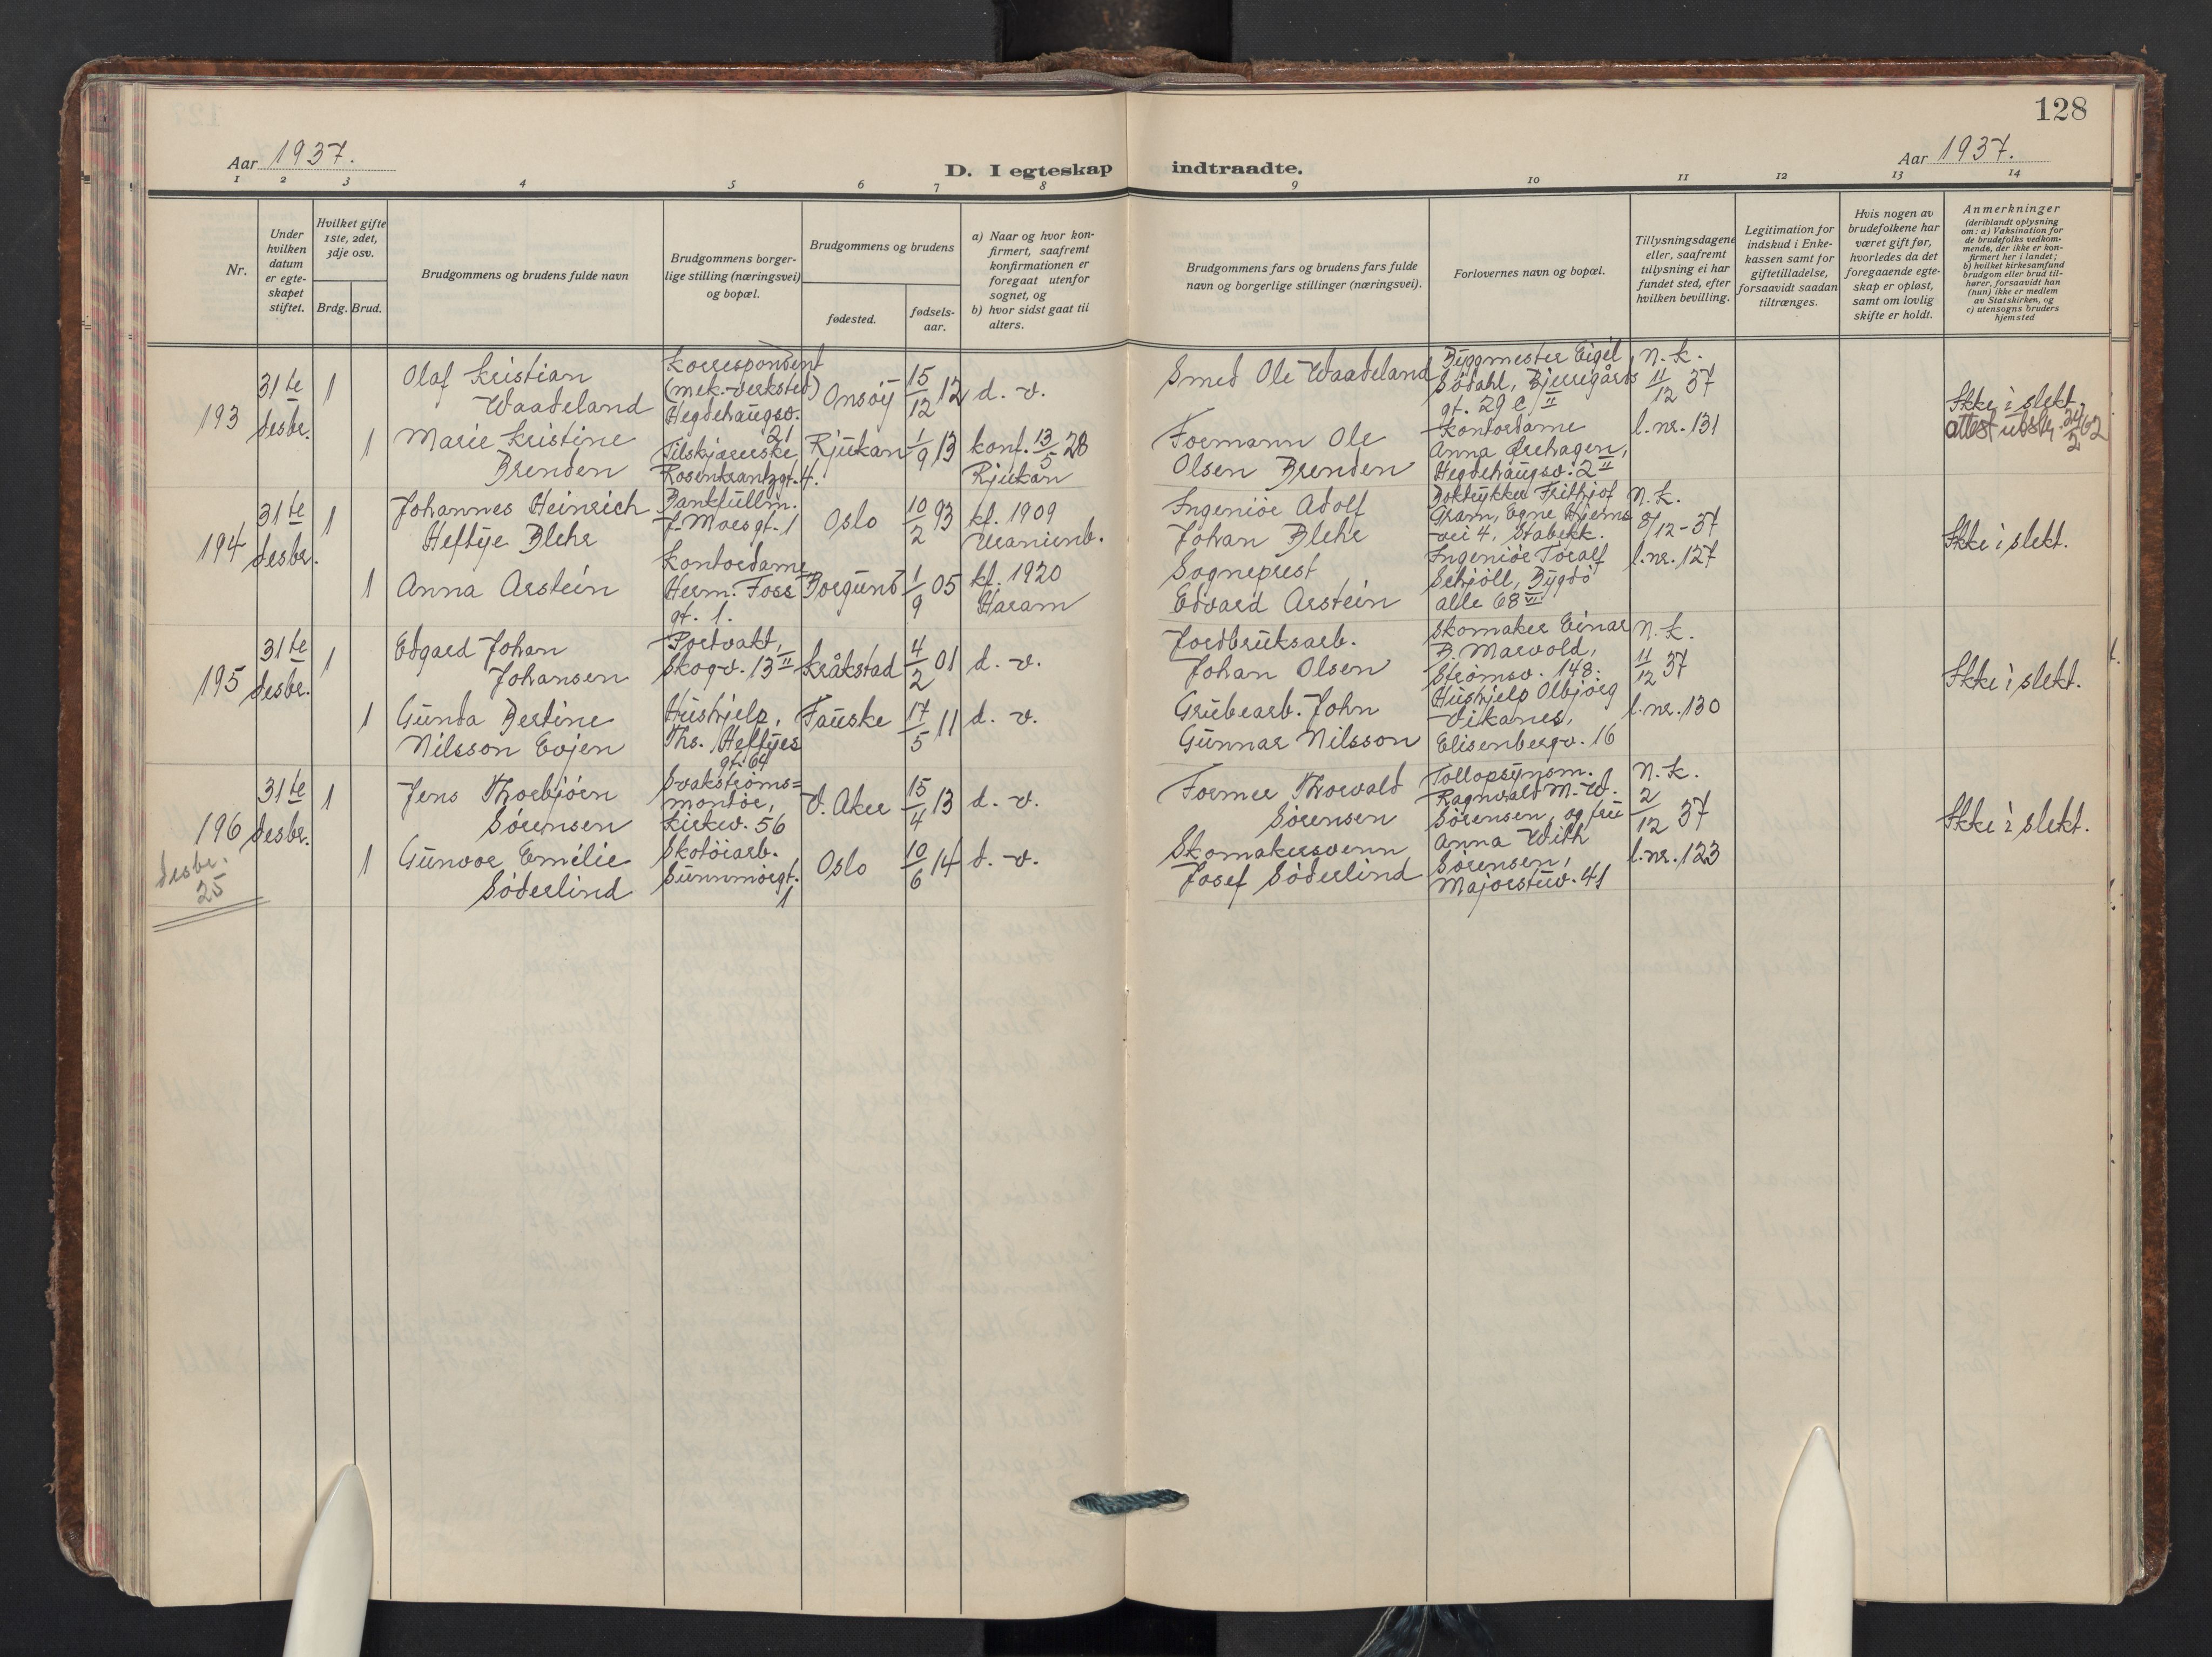 128
Aar 1937.
D. I egteskap indtraadte.
Aar 1937.
1 2 3 4 5 6 7 8 9 10 11 12 13 14
Nr.
Under
hvilken
datum
er egte-
skapet
stiftet.
Hvilket gifte
1ste, 2det,
3dje osv.
Brdg. Brud.
Brudgommens og brudens fulde navn
Brudgommens borger-
lige stilling (næringsvei)
og bopæl.
Brudgommens og brudens
fødested.
fødsels-
aar.
a) Naar og hvor kon-
firmert, saafremt
konfirmationen er
foregaat utenfor
sognet, og
b) hvor sidst gaat til
alters.
Brudgommens fars og brudens fars fulde
navn og borgerlige stillinger (næringsvei).
Forlovernes navn og bopæl.
Tillysningsdagene
eller, saafremt
tillysning ei har
fundet sted, efter
hvilken bevilling.
Legitimation for
indskud i Enke-
kassen samt for
giftetilladelse,
forsaavidt saadan
tiltrænges.
Hvis nogen av
brudefolkene har
været gift før,
hvorledes da det
foregaaende egte-
skap er opløst,
samt om lovlig
skifte er holdt.
Anmerkninger
(deriblandt oplysning
om: a) Vaksination for
de brudefolks vedkom-
mende, der ikke er kon-
firmert her i landet;
b) hvilket kirkesamfund
brudgom eller brud til-
hører, forsaavidt han
(hun) ikke er medlem
av Statskirken, og
c) utensogns bruders
hjemsted
193
31te
desbr.
1
Olaf Kristian
Waadeland
Korrespondent
(mek.-verksted)
Hegdehaugsv.
21
Onsøy
15/12 12
d. v.
Smed Ole Waadeland
Byggmester Eigil
Sødahl, Bjerregårds
gt. 29 c II
n. k.
11/12 37
Ikke i slekt.
attest utstr. 24/2 62
1
Marie Kristine
Brenden
Tilskjærerske
Rosenkrantzgt. 4.
Rjukan
1/9 13
konf. 13/5 28
Rjukan
Formann Ole
Olsen Brenden
Kontordame
Anna Ørehagen,
Hegdehaugsv. 2 II
l. nr. 131
194
31te
desbr.
1
Johannes Heinrich
Heftye Blehr
Bankfullm.
J. Moes gt. 1
Oslo
10/2 93
kf. 1909
Uranienb.
Ingeniør Adolf
Johan Blehr
Boktrykker Frithjof
Gram, Egne Hjems
vei 4, Stabekk.
n. k.
8/12 - 37
Ikke i slekt.
1
Anna Arstein
Kontordame
Herm. Foss
gt. 1.
Borgund
1/9 05
kf. 1920
Haram
Sogneprest
Edvard Arstein
Ingeniør Toralf
Schjöll, Bygdö
alle 68 VI
l. nr. 127
195
31te
desbr.
1
Edgard Johan
Johansen
Portvakt,
Skogv. 13 II
Kråkstad
4/2 01
d. v.
Jordbruksarb.
Johan Olsen
Skomaker Einar
B. Marvold,
Strømsv. 148.
n. k.
11/12 37
Ikke i slekt.
1
Gunda Bertine
Nilsson Evjen
Hushjelp,
Ths. Heftyes
gt. 64
Fauske
17/5 11
d. v.
Grubearb. John
Gunnar Nilsson
Hushjelp Olbjørg
Vikanes,
Elisenbergv. 16
l. nr. 130
196
31te
desbr.
1
Jens Thorbjörn
Sørensen
Svakstrøms=
montør,
Kirkev. 56
V. Aker
15/4 13
d. v.
Former Thorvald
Sørensen
Tollopsynsm.
Ragnvald M. W.
Sørensen, og frue
Anna With
Sørensen,
Majorstuv. 41
n. k.
2/12 37
l. nr. 123
Ikke i slekt.
1
Gunvor Emélie
Søderlind
Skotøiarb.
Sunnmørgt.
1
Oslo
10/6 14
d. v.
Skomakersvenn
Josef Søderlind
desbr.
25